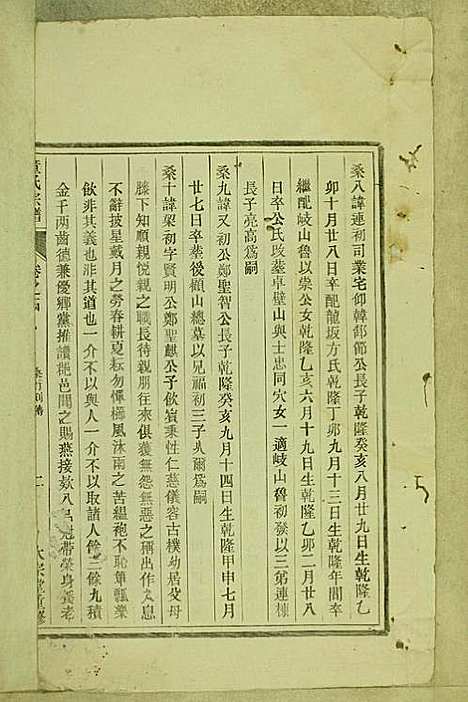 桑八諱連初司業宅仰韓郎節公長子乾隆癸亥八月廿九日生乾隆乙
卯十月廿八日辛酉配龍坂方氏乾隆丁卯九月十三日生乾隆年間卒
繼配岐山魯以崇公女乾隆乙亥六月十九日生乾隆乙卯二月廿八
日卒公氏改塟卓壁山與士忠同穴女一適岐山魯初發以三弟連棟
長子亮高爲嗣
桑九諱又初公鄭聖智公長子乾隆癸亥九月十四日生乾隆甲申七月
廿七日卒塟後顧山總墓以兄福初三子火爾爲嗣
桑十諱梁初字賢明公鄭聖麒公子飲賔秉性仁慈儀容古樸幼居父母
膝下知順親悅親之職長待親朋往來俱獲無怨無惡之稱出作入息
不辭披星戴月之勞春耕夏耘勿憚櫛風沐雨之苦縕袍不恥簞瓢樂
飲非其義也非其道也一介不以與人一介不以取諸人餘三餘九積
金千两齒德兼優鄉黨推讚絶邑聞之賜燕接欵八品冠帶榮身養老
氏宗譜
卷之四
桑行列傳
二